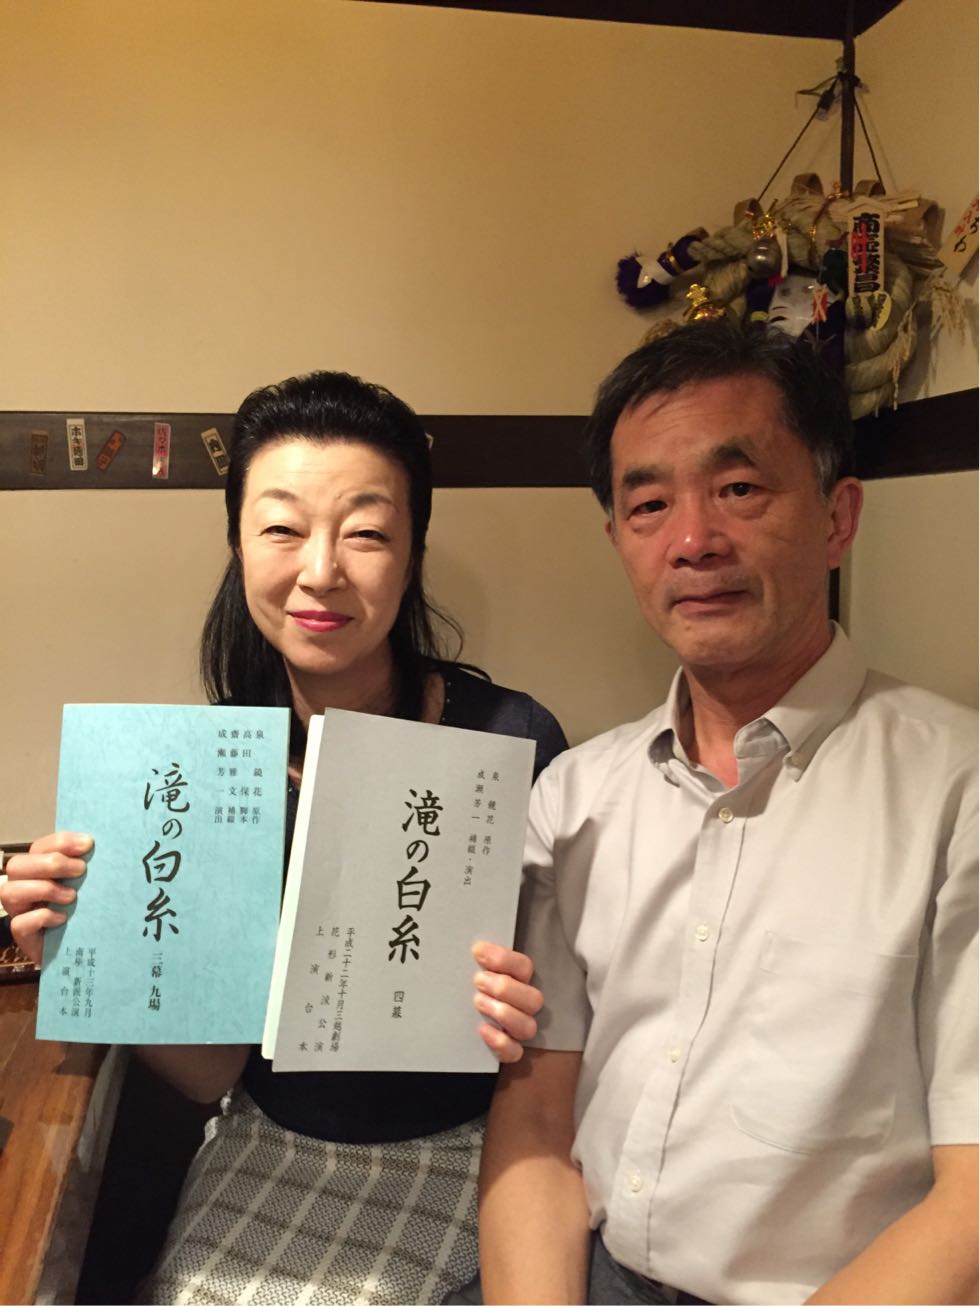 泉 鏡花 原作
高田 保 脚本
齋藤雅文 補綴
成瀬芳一 演出
滝の白糸 三幕九場
平成十三年九月
南座 新派公演
上演台本
泉 鏡花 原作
成瀬芳一 補綴・演出
滝の白糸 四幕
平成二十二年十月三越劇場
花形新派公演
上演台本
商売繁昌